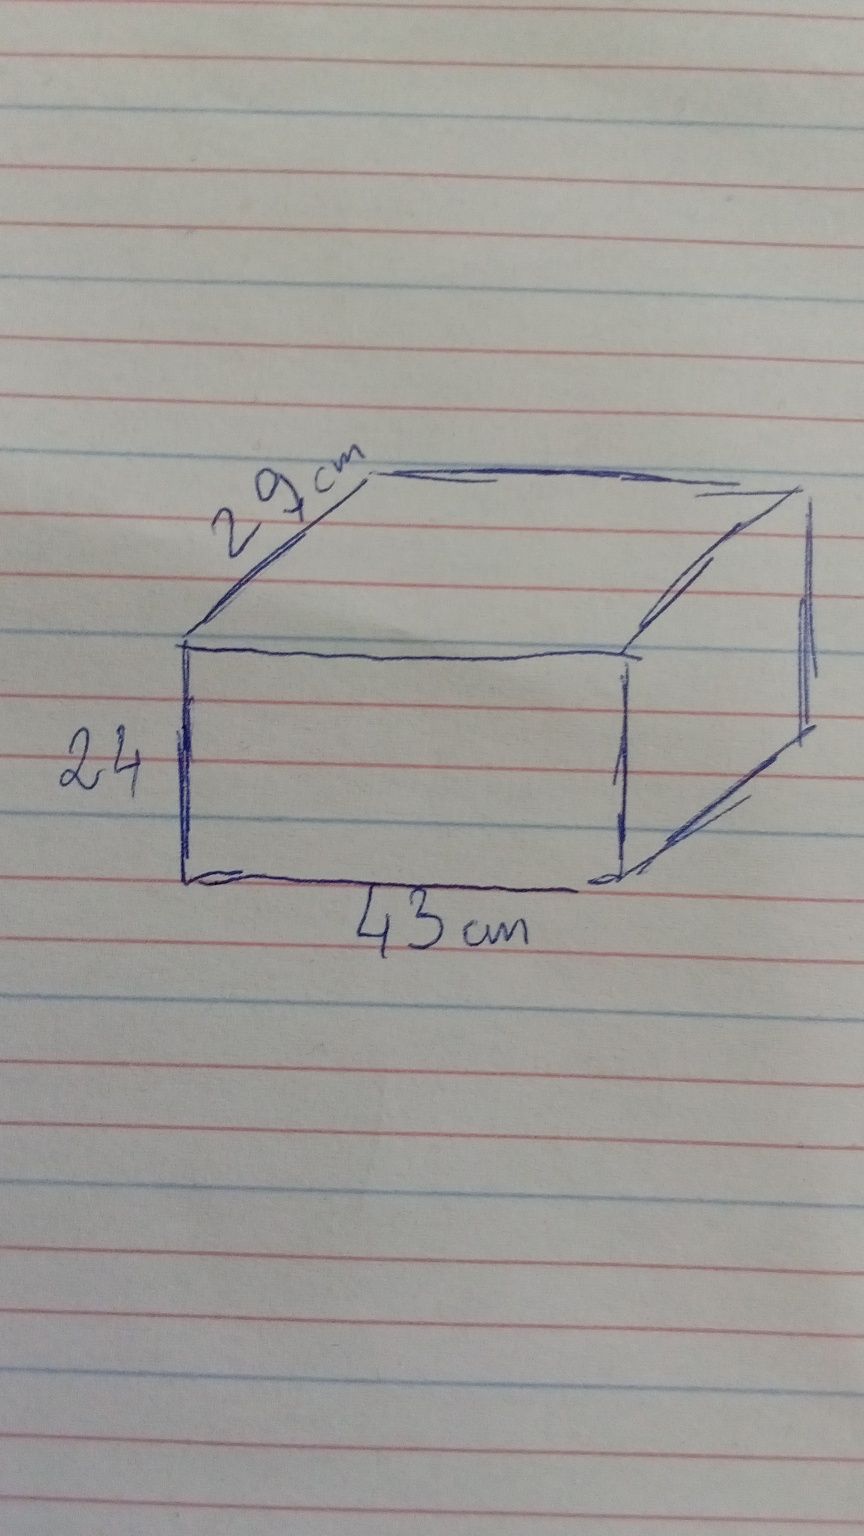 29cm
24
43 cm